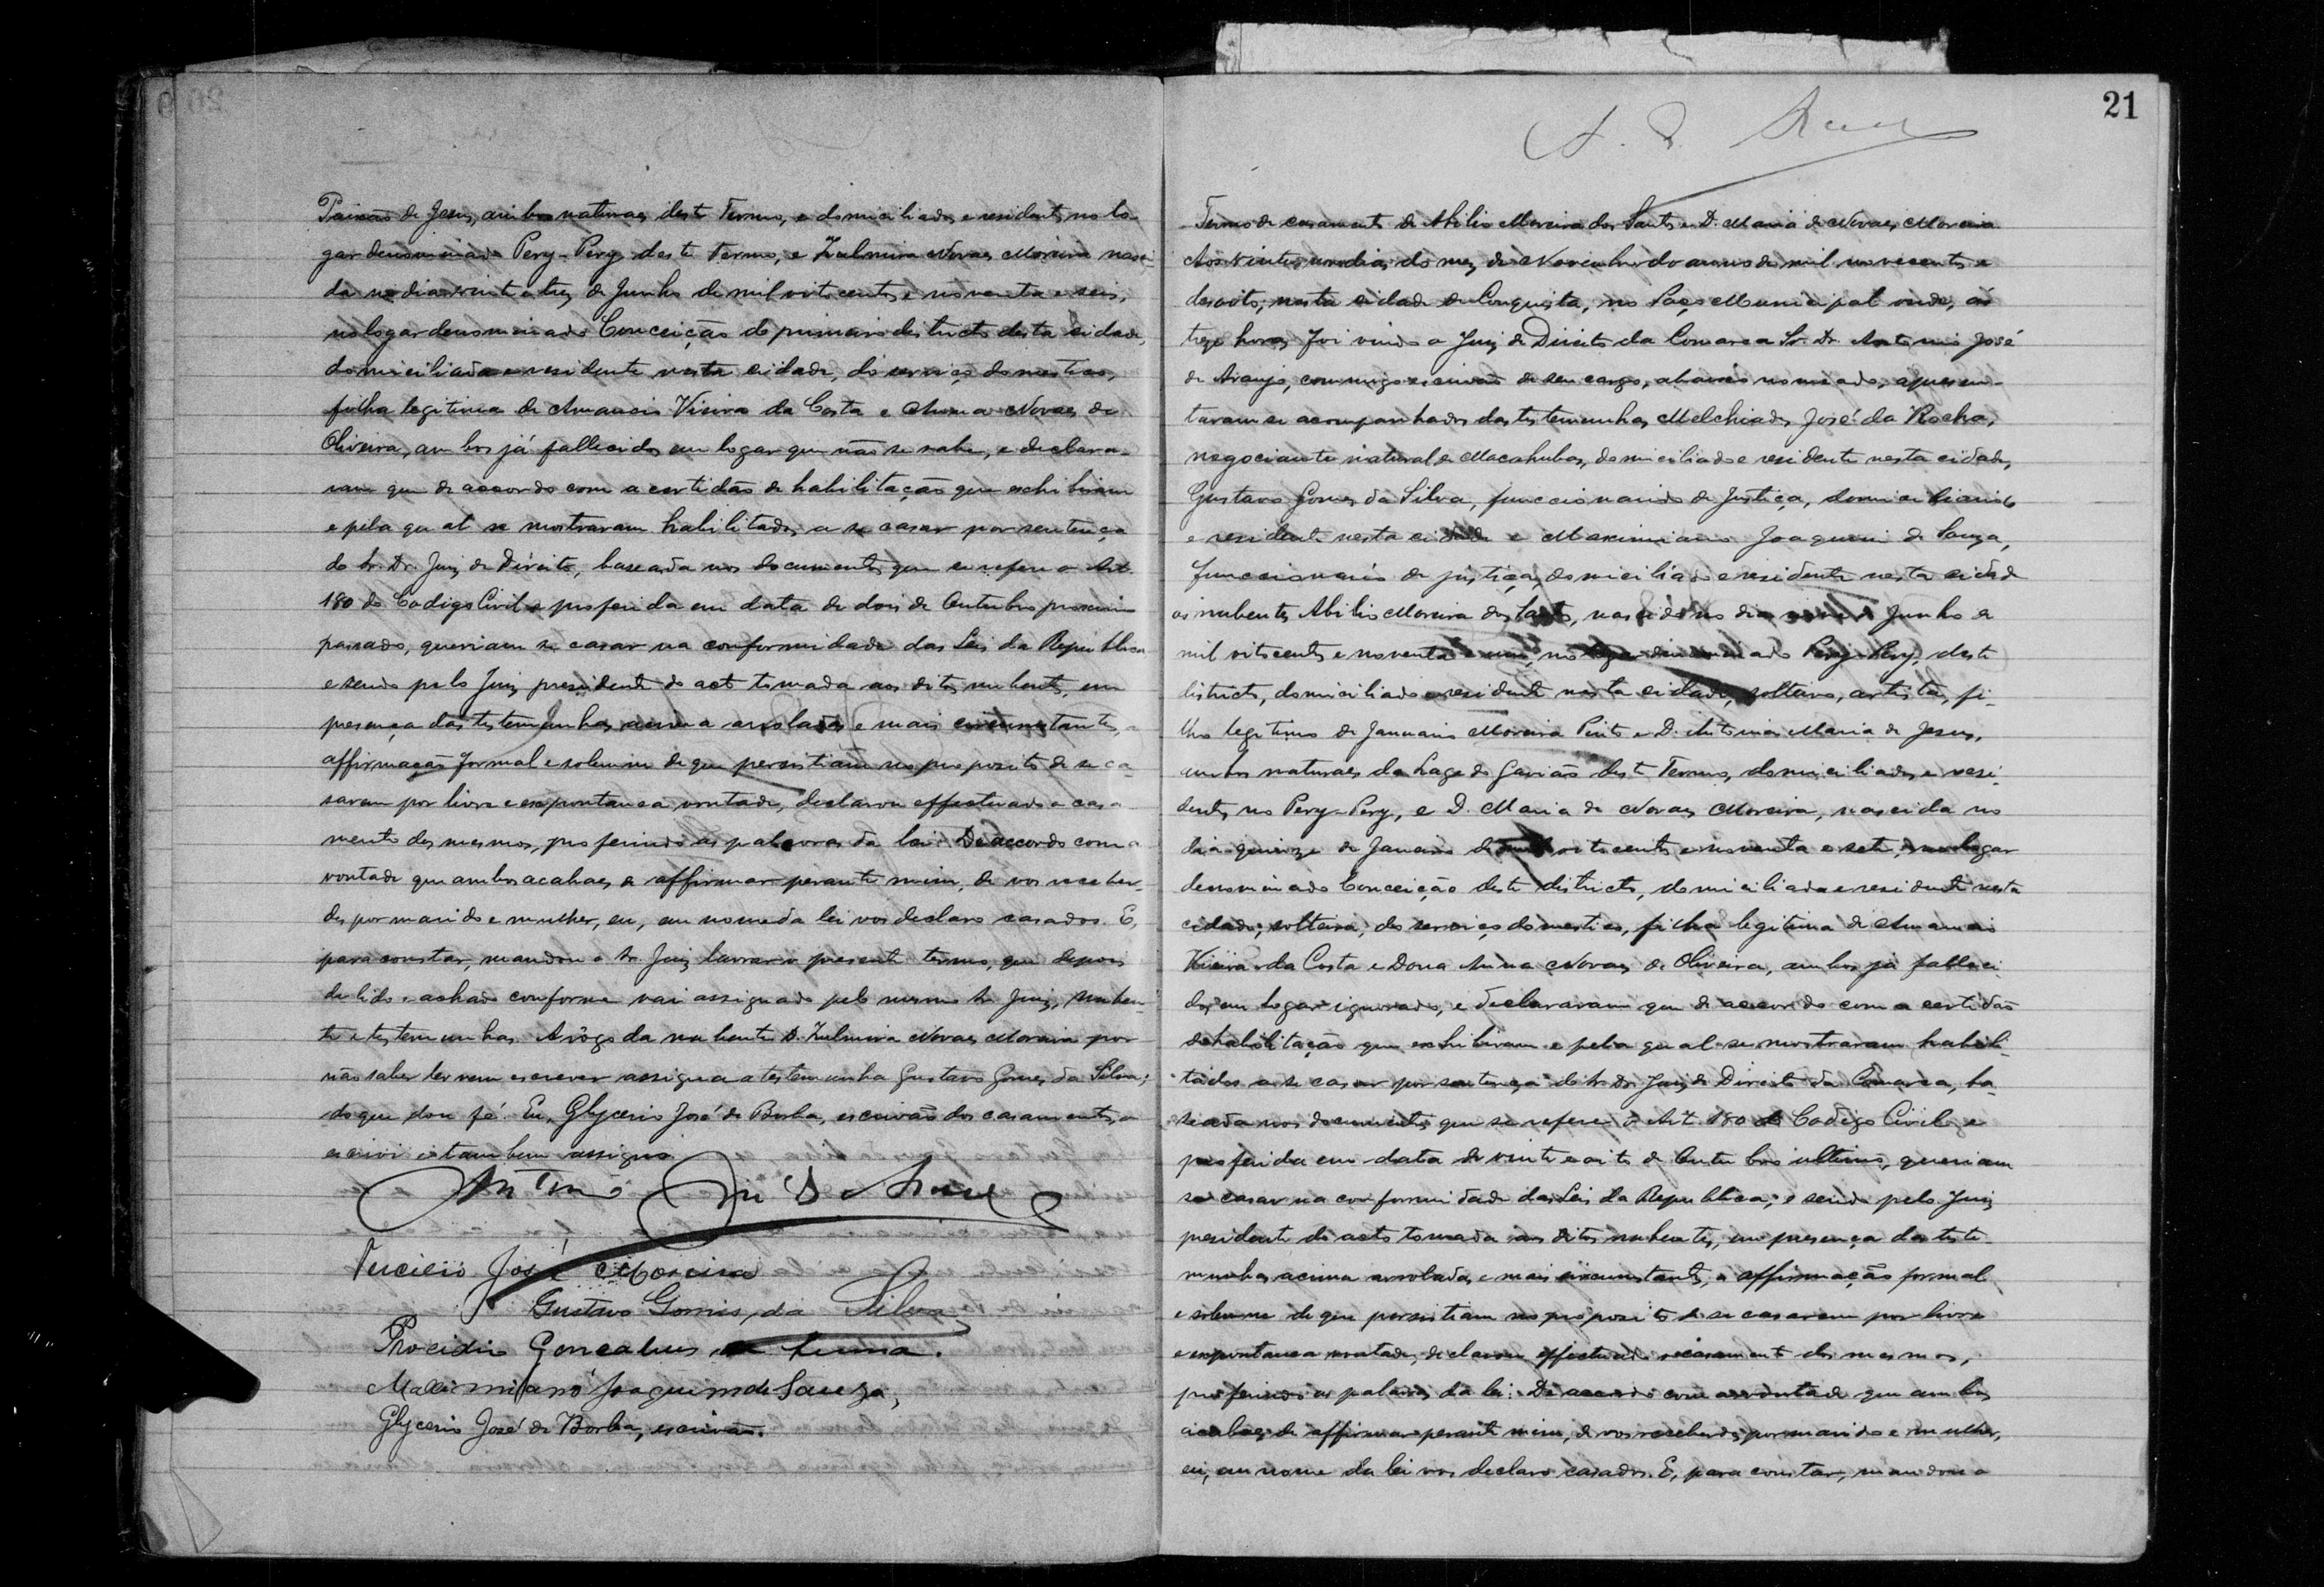 Paixão de Jesus, ambos naturaes deste Termo, e domiciliados e residentes no lo-
gar denominado Pery-Pery deste termo, e Zulmira Novaes Moreira nasci-
da no dia vinte e tres de Junho de mil oitocentos e noventa e seis,
no logar denominado Conceição do primeiro districto desta cidade,
domiciliada e residente nesta cidade, do serviço domestico,
filha legitima de Amancio Vieira da Costa e Anna Novaes de
Oliveira, ambos já fallecidos em logar que não se sabe, e declara-
ram que de accordo com a certidão de habilitação que exhibiram
e pela qual se mostraram habilitados a se casar por sentença
do Sr. Dr. Juiz de Direito, baseada nos documentos que se refere o Art.
180 do Codigo Civil e proferida em data de dois de Outubro proximo
passado, queriam se casar na conformidade das Leis da Republica
e sendo pelo Juiz presidente do acto tomada aos ditos nubentes, em
presença das testemunhas acima arroladas e mais circumstantes, a
affirmação formal e solemne de que persistiam no proposito de se ca-
sarem por livre e expontanea vontade, declarou effectuado o casa-
mento dos mesmos, proferindo as palavras da lei: De accordo com a
vontade que ambos acabaes de affirmar perante mim, de vos receber-
des por marido e mulher, eu, em nome da lei vos declaro casados. E,
para constar, mandou o Sr. Juiz lavrar o presente termo, que depois
de lido e achado conforme vai assignado pelo mesmo Sr. Juiz, nuben-
te e testemunhas. A rôgo da nubente D. Zulmira Novaes Moreira por
não saber ler nem escrever assigna a testemunha Gustavo Gomes da Silva;
do que dou fé. Eu, Glycerio José de Borba, escrivão dos casamentos, o
escrivi e tambem assigno.
Antonio José de Araujo
José Moreira
Gustavo Gomes da Silva
Gonçalves de
Maximiano Joaquim de Souza,
Glycerio José de Borba, escrivão.
21
A. J. Araujo
Termo de casamento de Abilio Moreira dos Santos e D. Maria de Novaes Moreira
Aos vinte e um dias do mez de Novembro do anno de mil novecentos e
desoito, nesta cidade da Conquista, no Paço Municipal onde, ás
treze horas foi vindo o Juiz de Direito da Comarca Sr. Dr. Antonio José
de Araujo, commigo escrivão de seu cargo, abaixo nomeado, apresen-
taram se acompanhados das testemunhas Melchiades José da Rocha,
negociante natural de Macahubas, domiciliado e residente nesta cidade,
Gustavo Gomes da Silva, funccionario de Justiça, domiciliado
e residente nesta cidade e Maximiano Joaquim de Souza,
funccionario de justiça, domiciliado e residente nesta cidade
os nubentes Abilio Moreira dos Santos, nascido no dia de Junho de
mil oitocentos e noventa e um, no logar denominado Pery-Pery, deste
districto, domiciliado e residente nesta cidade, solteiro, artista, fi-
lho legitimo de Januario Moreira Pinto e D. Antonia Maria de Jesus,
ambos naturaes da Lage do Gavião deste Termo, domiciliados e resi-
dentes no Pery-Pery, e D. Maria de Novaes Moreira, nascida no
dia quinze de Janeiro de mil oitocentos e noventa e sete, no logar
denominado Conceição deste districto, domiciliada e residente nesta
cidade, solteira, do serviço domestico, filha legitima de Amancio
Vieira da Costa e Dona Anna Novaes de Oliveira, ambos já falleci-
dos em logar ignorado, e declararam que de accordo com a certidão
de habilitação que exhibiram e pela qual se mostraram habili-
tados a se casar por sentença do Sr. Dr. Juiz de Direito da Comarca, ba-
seada nos documentos que se refere o Art. 180 do Codigo Civil e
proferida em data de vinte e oito de Outubro ultimo, queriam
se casar na conformidade das Leis da Republica; e sendo pelo Juiz
presidente do acto tomada aos ditos nubentes, em presença das teste-
munhas acima arroladas e mais circumstantes, a affirmação formal
e solemne de que persistiam no proposito de se casarem por livre
e expontanea vontade, declarou effectuado o casamento dos mesmos,
proferindo as palavras da lei: De accordo com a vontade que ambos
acabaes de affirmar perante mim, de vos receberdes por marido e mulher,
eu, em nome da lei vos declaro casados. E, para constar, mandou o